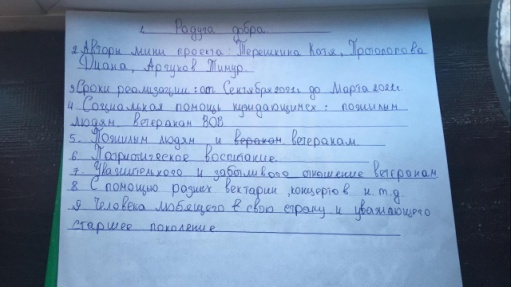 1. Радуга добра.
2 Авторы мини проекта: Терешкина Катя, Протопопова
Диана, Арзуков Тимур.
3 Сроки реализации: от Сентября до Марта
4. Социальная помощь нуждающимся: пожилым
людям, ветеранам ВОВ
5. Пожилым людям и ветеранам
6 Патриотическое воспитание
7 Уважительного и заботливого отношение ветеранам
8 С помощью разных викторин, концертов и т.д
9 Человека любящего в свою страну и уважающего
старшее поколение